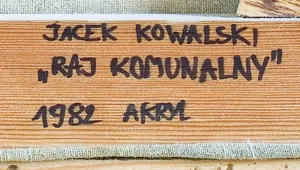 JACEK KOWALSKI
„RAJ KOMUNALNY”
1982 AKRYL